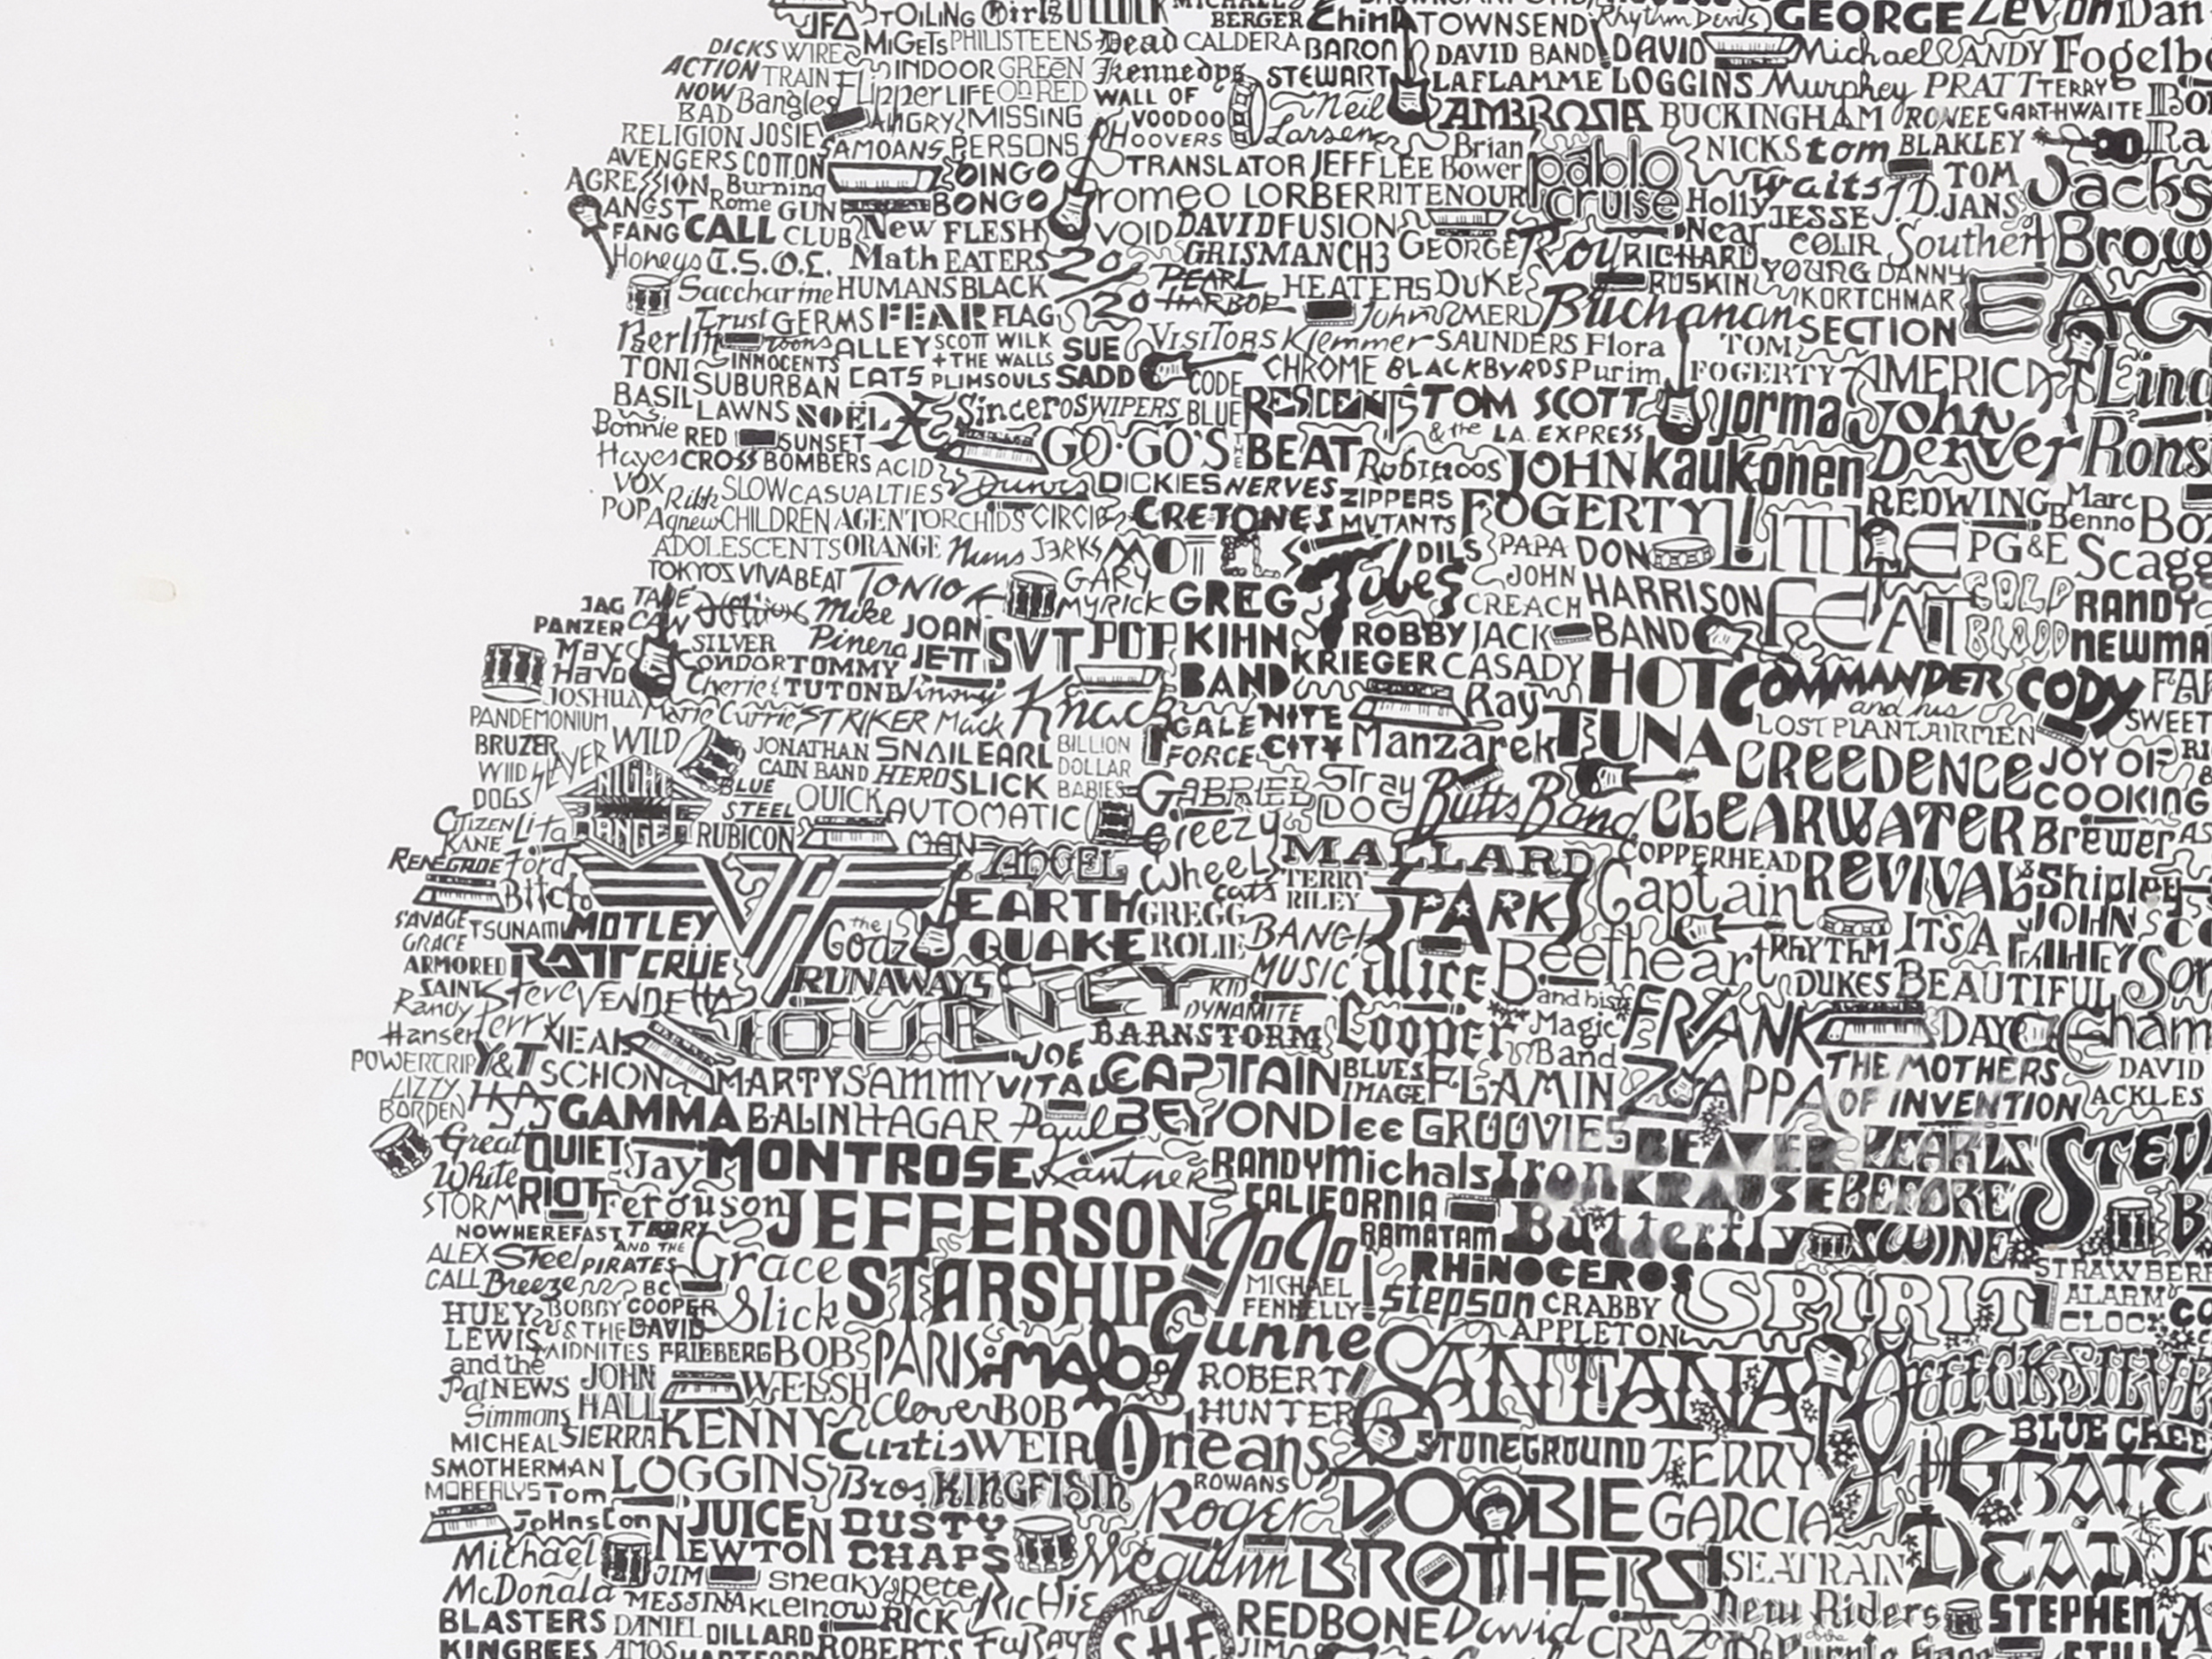 TOILING Girls
MICHAEL BERGER China TOWNSEND Rhythm Devils GEORGE Zevon Dan
JFA MIGETS PHILISTEENS Dead CALDERA BARON DAVID BAND DAVID Michael ANDY Fogelbe
DICKS WIRE
ACTION TRAIN Flipper INDOOR GREEN Kennedys STEWART LAFLAMME LOGGINS Murphey PRATT TERRY
NOW Bangles LIFE On RED WALL OF Neil AMBROSIA BUCKINGHAM RONEE GARTHWAITE
BAD ANGRY MISSING VOODOO Larsen
RELIGION JOSIE SAMOANS PERSONS HOOVERS Brian pablo NICKS tom BLAKLEY Ra
AVENGERS COTTON OINGO TRANSLATOR JEFF LEE Bower cruise waits TOM Jacks
AGRESSION Burning BONGO romeo LORBER RITENOUR Holly JESSE J.D. JANS
ANGST Rome GUN New FLESH VOID DAVID FUSION Near COLIN Souther Brow
FANG CALL CLUB GRISMAN CH3 GEORGE Roy RICHARD YOUNG DANNY
Honeys T.S.O.L. Math EATERS 20/20 PEARL HARBOR HEATERS DUKE RUSKIN KORTCHMAR EAG
Saccharine HUMANS BLACK John MERL Buchanan SECTION
Trust GERMS FEAR FLAG VISITORS Klemmer SAUNDERS Flora TOM
Berlin Toons ALLEY SCOTT WILK SUE CHROME BLACKBYRDS Purim FOGERTY AMERICA Lind
TONI INNOCENTS CATS + THE WALLS SADD CODE
BASIL SUBURBAN PLIMSOULS
LAWNS NOËL X Sinceros WIPERS BLUE RESCENTS TOM SCOTT Jorma John
Bonnie RED SUNSET GO·GO'S THE BEAT & the L.A. EXPRESS Kaukonen Denver Rons
Hayes CROSS BOMBERS ACID Rubinoos JOHN
VOX Ribh SLOW CASUALTIES Durocs DICKIES NERVES ZIPPERS FOGERTY LITTLE REDWING Marc Boz
POP Agnew CHILDREN AGENT ORCHIDS CIRCLE CRETONES MUTANTS Benno
ADOLESCENTS ORANGE Nuns JERKS MOTELS DILS PAPA DON FEAT PG&E Scagg
TOKYOS VIVABEAT TONIO K GARY Tubes JOHN HARRISON COLD RANDY
JAG TANE Mike MYRICK GREG CREACH BAND BLOOD NEWMA
PANZER CAIN SILVER Pinera JOAN SVT POP KIHN ROBBY JACK
May CONDOR TOMMY JETT BAND KRIEGER CASADY HOT COMMANDER CODY
Havo Cherie & TUTONE Jimmy Knack Ray TUNA and his
JOSHUA Marie Currie STRIKER Mack GALE NITE Manzarek LOST PLANT AIRMEN SWEET
PANDEMONIUM WILD JONATHAN SNAIL EARL BILLION FORCE CITY CREEDENCE JOY OF
BRUZER SLAYER CAIN BAND HERO SLICK DOLLAR GABRIEL Stray Butts Band CLEARWATER COOKING
WIID NIGHT BLUE QUICK BABIES DOG REVIVAL Brewer
DOGS RANGER STEEL AUTOMATIC Greezy MALLARD COPPERHEAD & Shipley
CITIZEN Lita RUBICON MAN ANGEL Wheels TERRY SPARKS Captain JOHN
KANE Ford VH EARTH cats RILEY Beefheart RHYTHM IT'S A FAHEY
RENEGADE Bitch the QUAKE GREGG BANG! Alice DUKES BEAUTIFUL
SAVAGE TSUNAMI MOTLEY Godz ROLIE MUSIC Cooper and his FRANK DAY
GRACE RATT CRÜE RUNAWAYS KID Magic ZAPPA THE MOTHERS DAVID
ARMORED Steve VENDETTA JOURNEY DYNAMITE Band OF INVENTION ACKLES
SAINT Perry JOE BARNSTORM BLUES FLAMIN
Randy NEAL MARTY SAMMY VITAL CAPTAIN IMAGE GROOVIES BEAVER PEARLS STEV
Hansen Y&T SCHON BALIN HAGAR Paul BEYOND lee Iron KRAUSE BEFORE
POWERTRIP HSAS GAMMA MONTROSE Kantner RANDY Michals Butterfly SWINE
LIZZY QUIET Jay CALIFORNIA STRAWBER
BORDEN RIOT Ferguson JEFFERSON JoJo RAMATAM SPIRIT ALARM
Great TERRY Grace STARSHIP MICHAEL RHINOCEROS CLOCK
White AND THE Slick FENNELLY Stepson CRABBY
STORM PIRATES BC Gunne APPLETON
NOWHEREFAST COOPER PARIS MALO ROBERT SANTANA QUICKSILVE
ALEX Steel BOBBY DAVID BOB HUNTER
CALL Breeze & THE FRIEBERG WELSH Clover BOB Orleans STONEGROUND JERRY BLUE CHEE
HUEY MIDNITES JOHN KENNY Curtis WEIR ROWANS DOOBIE GARCIA GRATE
LEWIS HALL LOGGINS Bros. KINGFISH Roger BROTHERS SEATRAIN DEAD
and the NEWS SIERRA JUICE DUSTY Mcguinn New Riders STEPHEN
Pat Simmons Tom NEWTON CHAPS REDBONE David of the STILL
MICHEAL Johnston JIM sneaky pete RicHie CRAZ Purple Sage
SMOTHERMAN MESSINA Kleinow RICK FuRay JIM
MOBERLYS DANIEL DILLARD ROBERTS SHE
Michael AMOS HARTFORD
McDonald
BLASTERS
KINGBEES